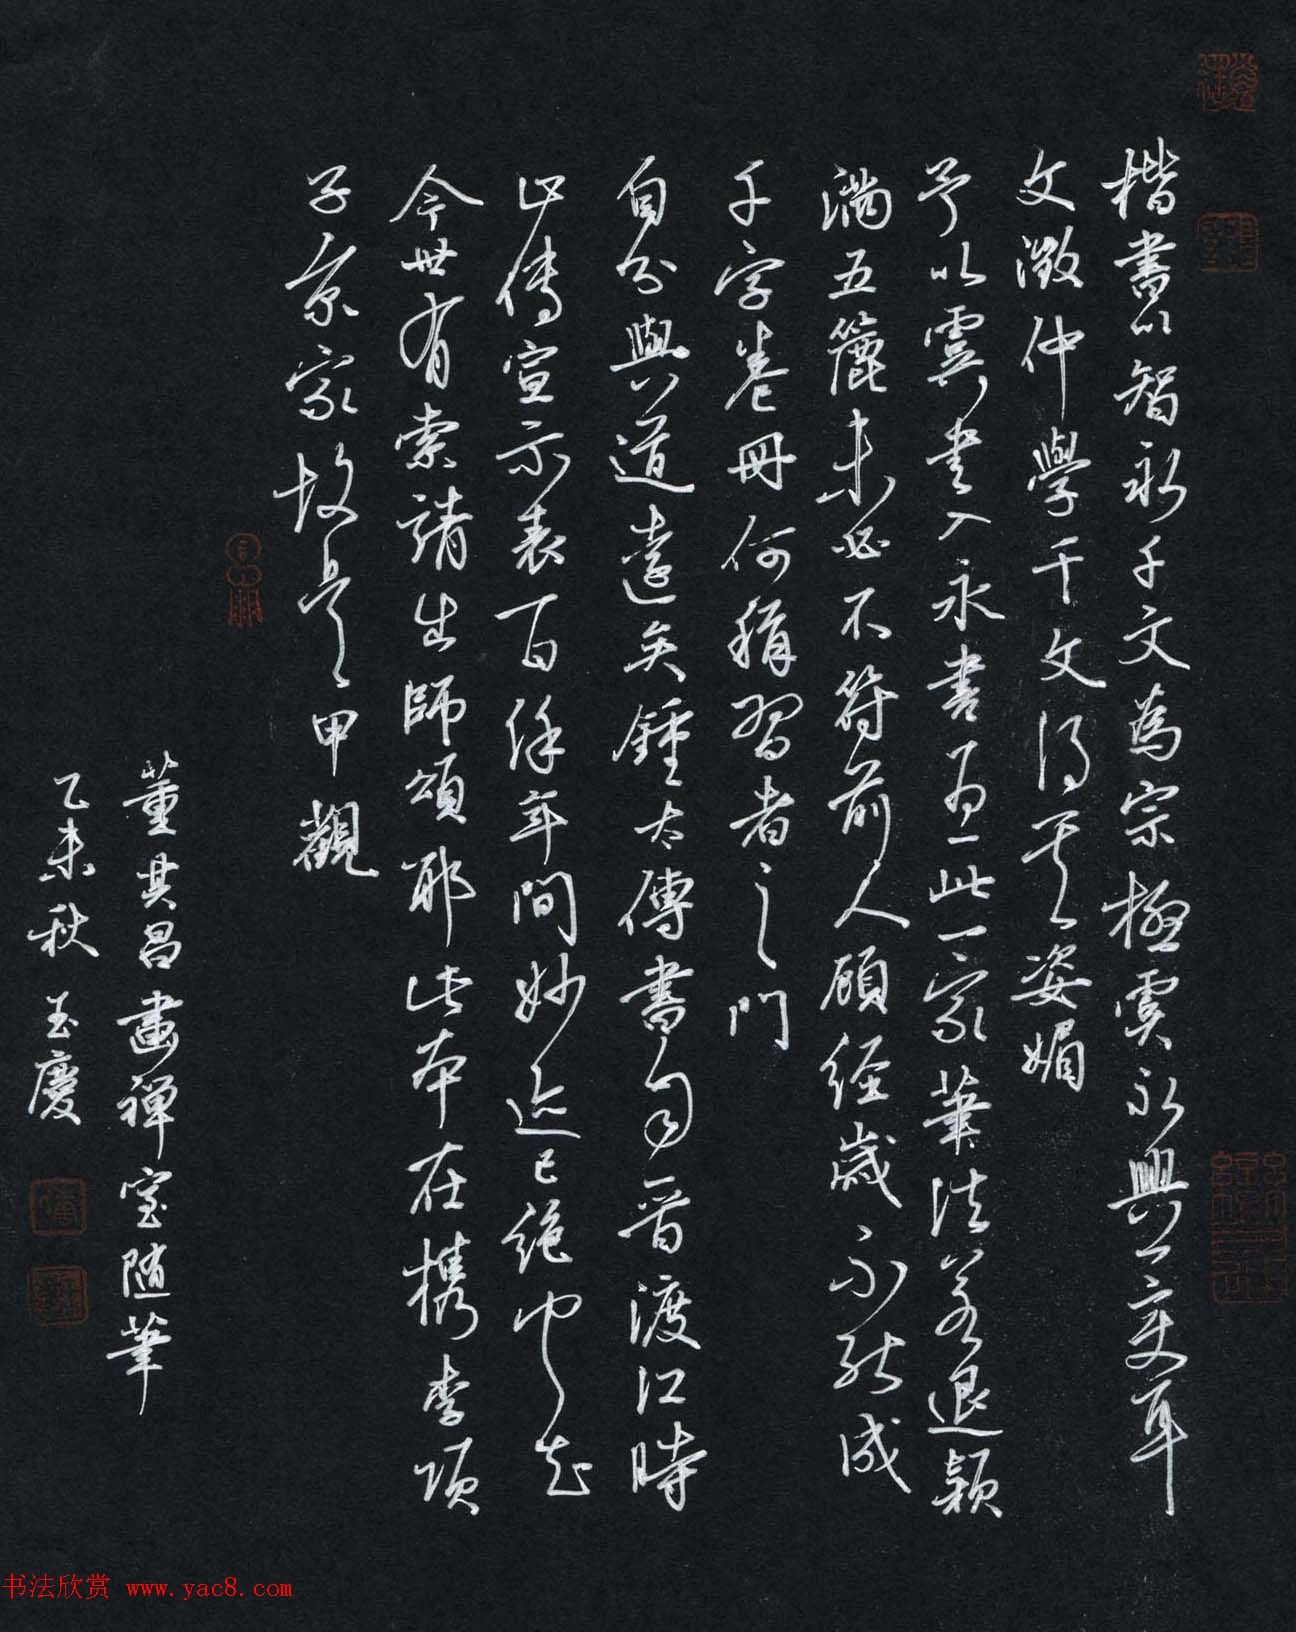 楷書以智永千文為宗極虞永興一變耳
文徵仲學千文得其姿媚
予以虞書入永書為此一家筆法若退穎
滿五簏未必不符前人顧經歲不能成
千字卷冊何稱習者之門
自分與道遠矣鍾太傅書自晉渡江時
止傳宣示表百餘年間妙迹已絕寧知
今世有索靖出師頌耶此本在檇李項
子京家故是甲觀
董其昌畫禪室隨筆
乙未秋 玉慶
书法欣赏 www.yac8.com